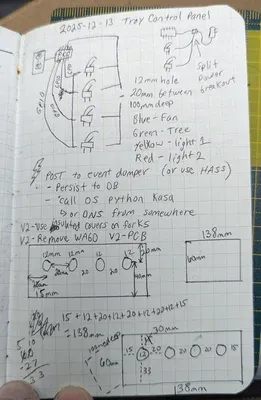 2025-12-13 Troy Control Panel
GPIO
GND
split
power
breakout
12mm hole
20mm between
100mm deep
Blue - Fan
Green - Tree
Yellow - light 1
Red - light 2
POST to event dumper (or use HASS)
- Persist to DB
- call OS python kasa
↳ or DNS from somewhere
V2-Use insulated covers on forks
V2-Remove WAGO V2-PCB
12mm 12mm 12 12
20 20
20mm
40mm
15mm
138mm
60mm
15+12+20+12+20+12+20+12+15
=138mm
100mm deep
30mm
15 12 20 20 20 15
60mm
33
138mm